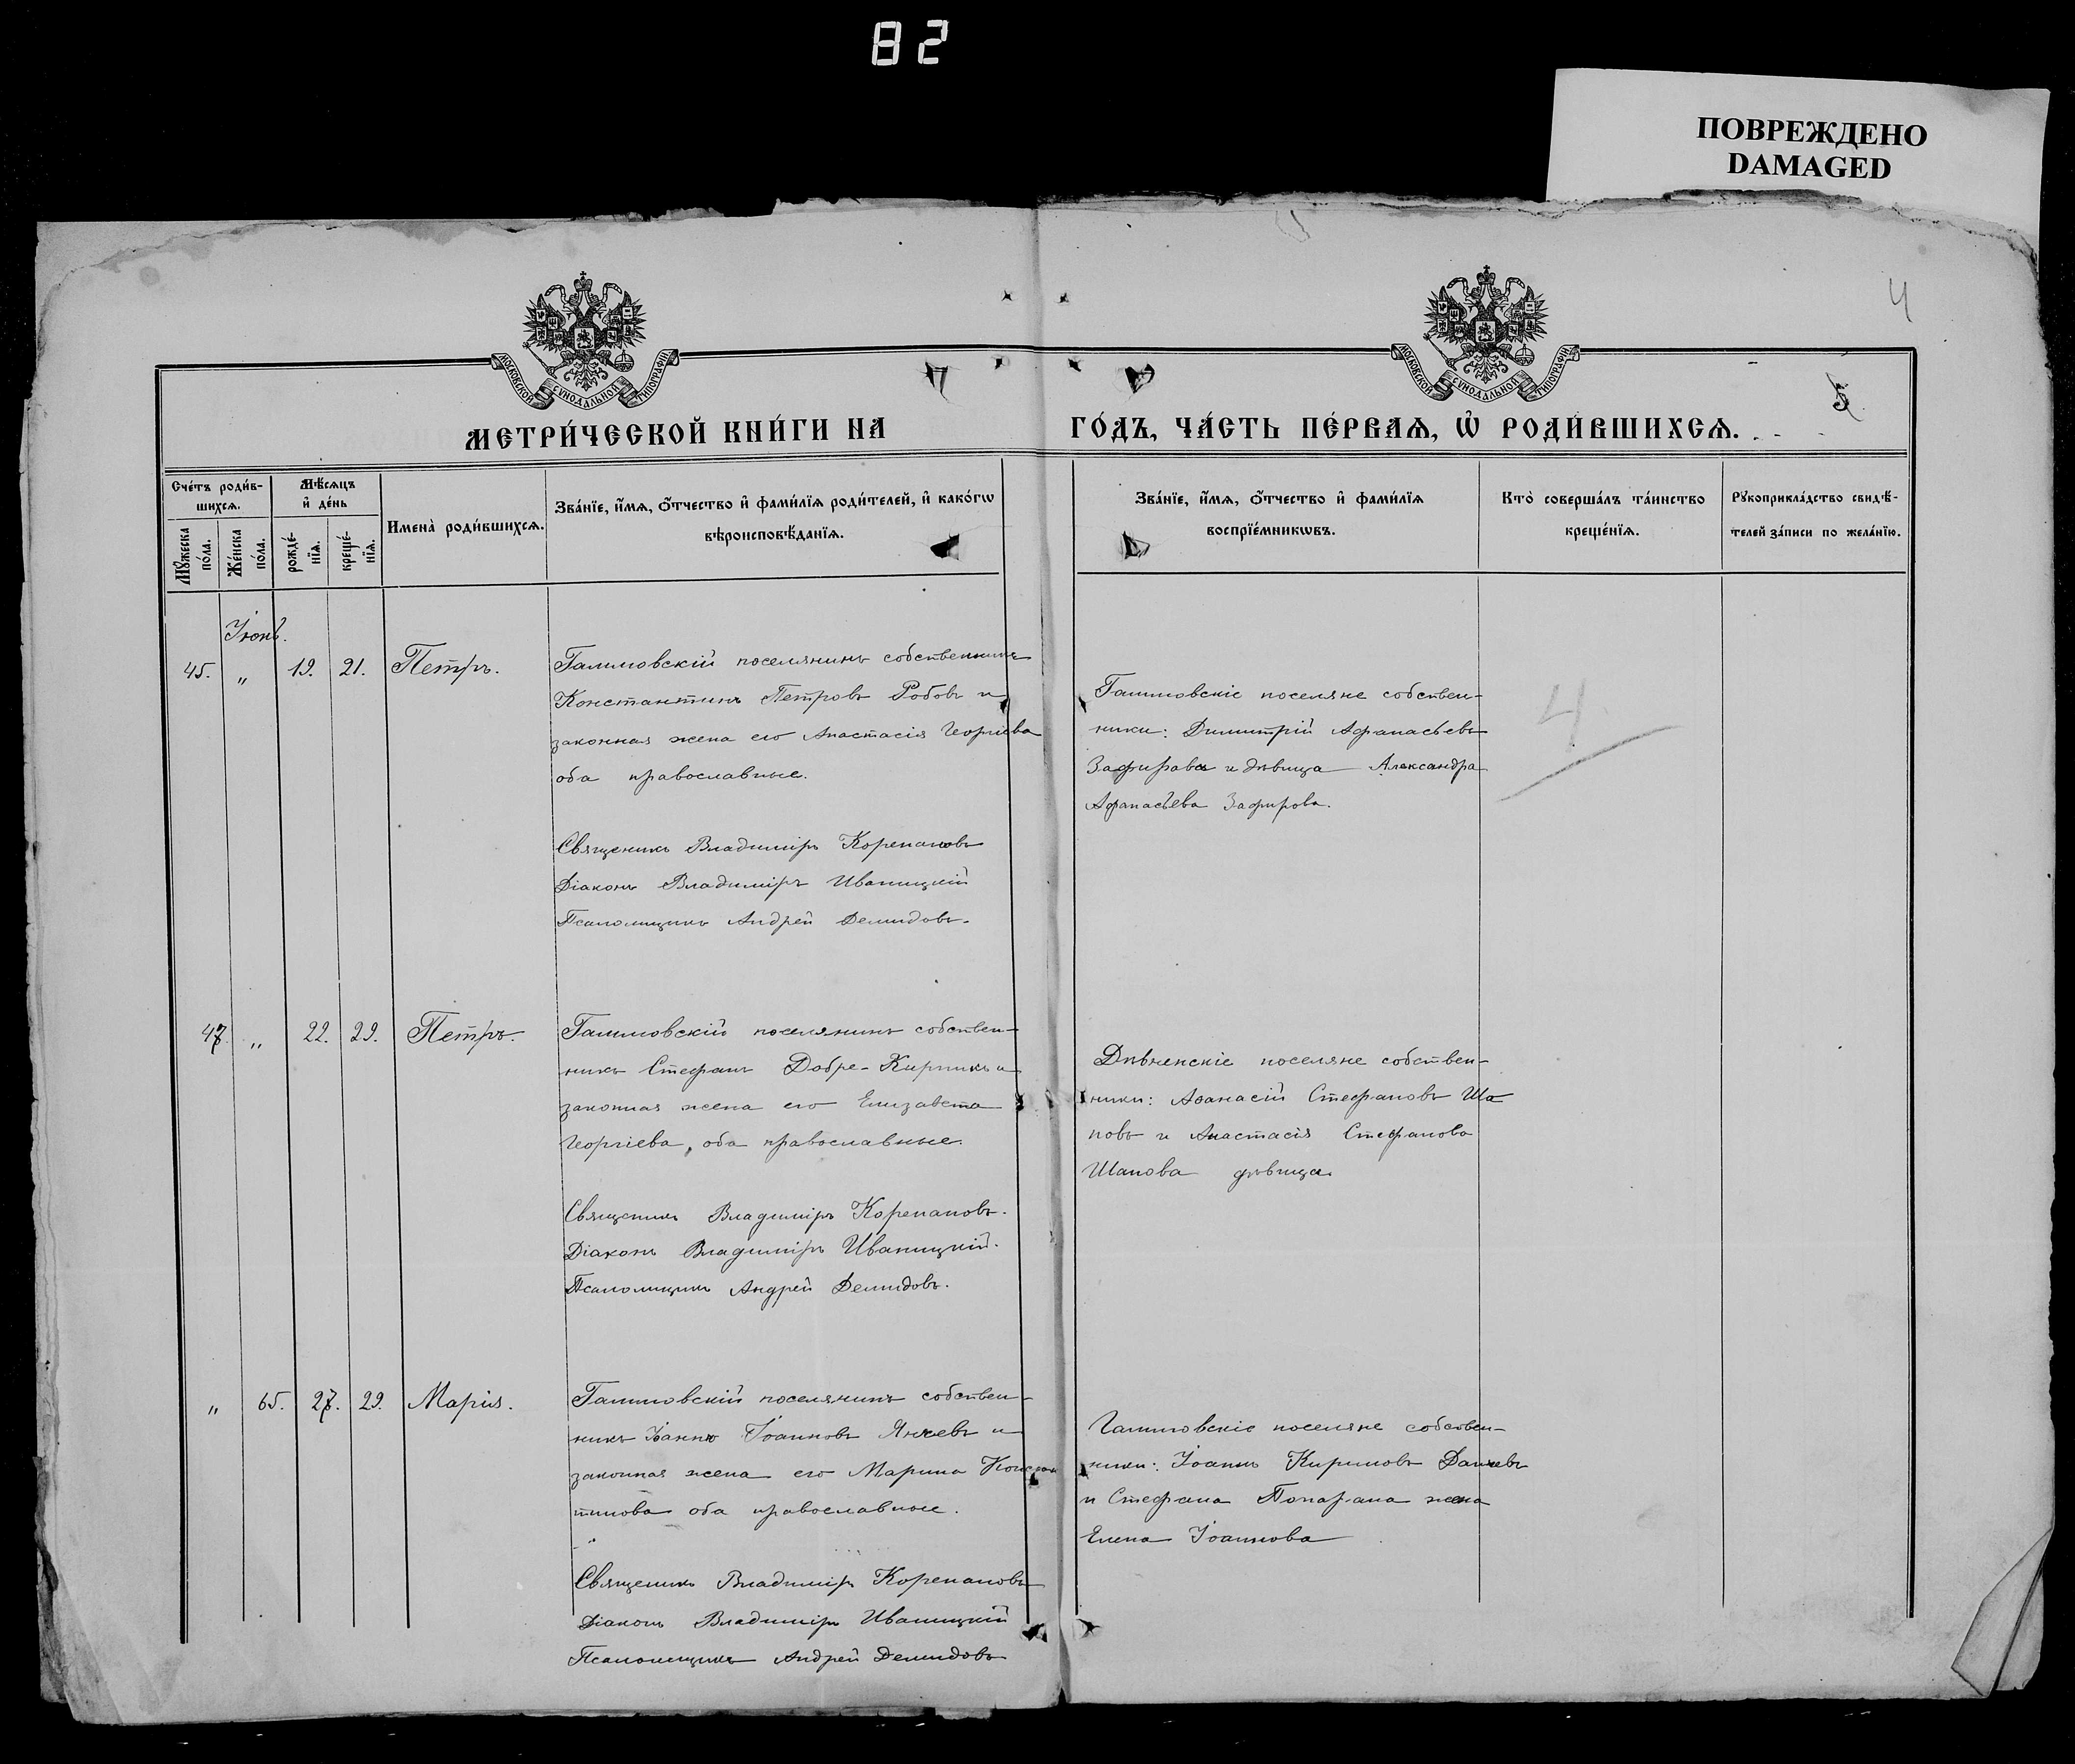 82
ПОВРЕЖДЕНО
DAMAGED
4
5
МОСКОВСКОЙ СѴНОДАЛЬНОЙ ТИПОГРАФІИ
МОСКОВСКОЙ СѴНОДАЛЬНОЙ ТИПОГРАФІИ
МЕТРИ́ЧЕСКОЙ КНИ́ГИ НА ГО́ДЪ, ЧА́СТЬ ПЕ́РВАѦ, Ѡ҆ РОДИ́ВШИХСѦ.
Сче́тъ роди́в-
шихсѧ.
Мꙋ́жеска по́ла.
Же́нска по́ла.
Мѣ́сѧцъ
и҆ де́нь
рожде́-
нїѧ.
креще́-
нїѧ.
Имена̀ роди́вшихсѧ.
Зва́нїе, и҆́мѧ, ѻ҆́тчество и҆ фами́лїѧ роди́телей, и҆ како́гѡ
вѣроисповѣ́данїѧ.
Зва́нїе, и҆́мѧ, ѻ҆́тчество и҆ фами́лїѧ
воспрїе́мникѡвъ.
Кто̀ соверша́лъ та́инство
креще́нїѧ.
Рꙋкоприкла́дство свидѣ́-
телей за́писи по жела́нїю.
Іюнь.
45. „ 19. 21. Петръ.
поселянинъ собственникъ
Константинъ Петровъ Робовъ и
законная жена его Анастасія Георгіева
оба православные.
Священикъ Владиміръ Корепановъ
Діаконъ Владиміръ Иваницкій
Псаломщикъ Андрей Демидовъ.
поселяне собствен-
ники: Димитрій Афанасьевъ
и дѣвица Александра
Афанасьева Зафирова.
4
47. „ 22. 29. Петръ.
поселянинъ собствен-
никъ Стефанъ Добре- и
законная жена его Елизавета
Георгіева, оба православные.
Священикъ Владиміръ Корепановъ.
Діаконъ Владиміръ Иваницкій.
Псаломщикъ Андрей Демидовъ.
поселяне собствен-
ники: Аѳанасій Стефановъ Ша
повъ и Анастасія Стефанова
Шапова дѣвица
„ 65. 27. 29. Марія.
поселянинъ собствен-
никъ Іоанновъ Янчевъ и
законная жена его Марина Констан
тинова оба православные.
Священикъ Владиміръ Корепановъ
Діаконъ Владиміръ Иваницкій
Псаломщикъ Андрей Демидовъ
поселяне собствен-
ники: Іоаннъ
и Стефана жена
Елена Іоаннова